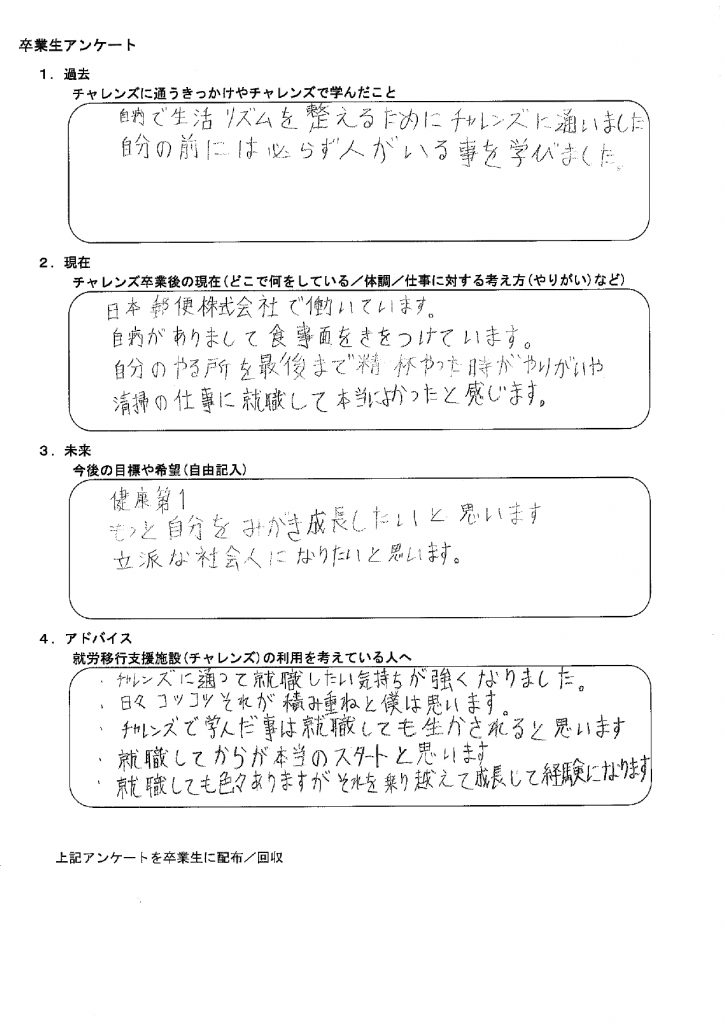 卒業生アンケート
1．過去
チャレンズに通うきっかけやチャレンズで学んだこと
自病で生活リズムを整えるためにチャレンズに通いました
自分の前には必らず人がいる事を学びました。
2．現在
チャレンズ卒業後の現在（どこで何をしている／体調／仕事に対する考え方（やりがい）など）
日本郵便株式会社で働いています。
自病がありまして食事面をきをつけています。
自分のやる所を最後まで精一杯やった時がやりがいや
清掃の仕事に就職して本当によかったと感じます。
3．未来
今後の目標や希望（自由記入）
健康第1
もっと自分をみがき成長したいと思います
立派な社会人になりたいと思います。
4．アドバイス
就労移行支援施設（チャレンズ）の利用を考えている人へ
・チャレンズに通って就職したい気持ちが強くなりました。
・日々コツコツそれが積み重ねと僕は思います。
・チャレンズで学んだ事は就職しても生かされると思います
・就職してからが本当のスタートと思います
・就職しても色々ありますがそれを乗り越えて成長して経験になります
上記アンケートを卒業生に配布／回収